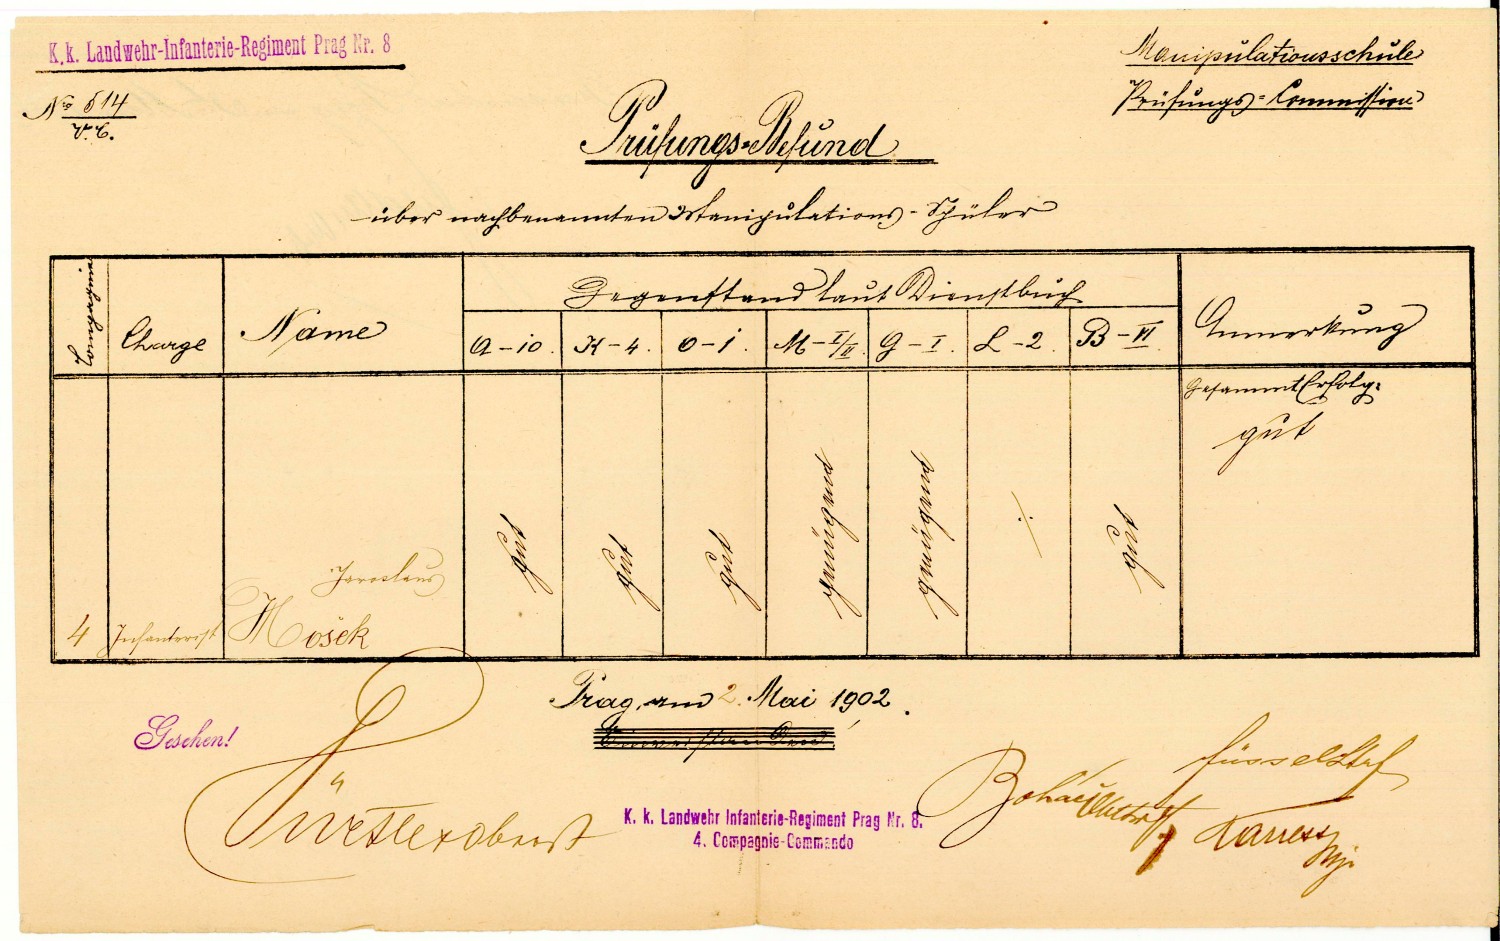 K. k. Landwehr-Infanterie-Regiment Prag Nr. 8
No 514
Manipulationsschule
Prüfungs-Commission
Prüfungs-Befund
über nachbenannten Manipulations-Schüler
Compagnie
Charge
Name
Gegenstand laut Dienstbuch
Anmerkung
A-10. K-4. O-1. M-I/II G-I. L-2. B-VI
Gesammt Erfolg:
gut
gut gut gut genügend genügend ÷ gut
Jaroslaus
4 Infanterist Mošek
Prag, am 2. Mai 1902.
Gesehen!
K. k. Landwehr Infanterie-Regiment Prag Nr. 8.
4. Compagnie-Commando